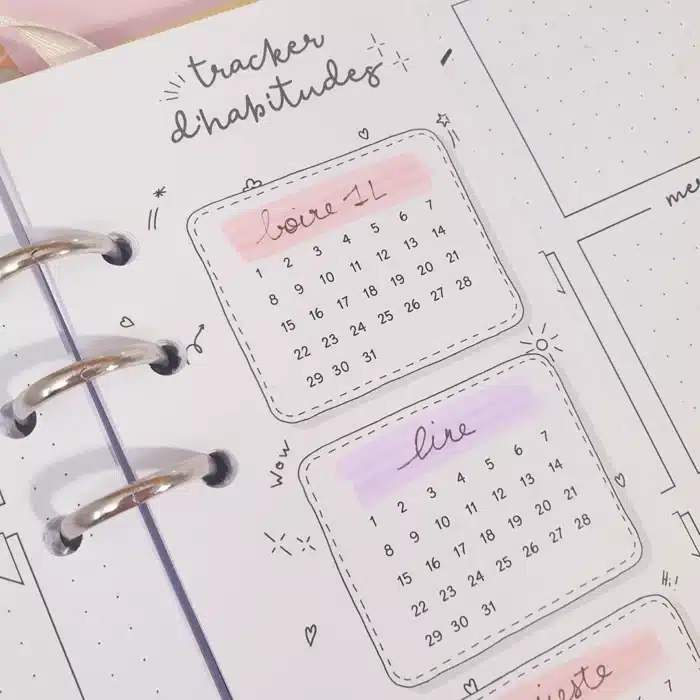 tracker
d'habitudes
boire 1L
1 2 3 4 5 6 7
8 9 10 11 12 13 14
15 16 17 18 19 20 21
22 23 24 25 26 27 28
29 30 31
Wow
lire
1 2 3 4 5 6 7
8 9 10 11 12 13 14
15 16 17 18 19 20 21
22 23 24 25 26 27 28
29 30 31
Hi!
7